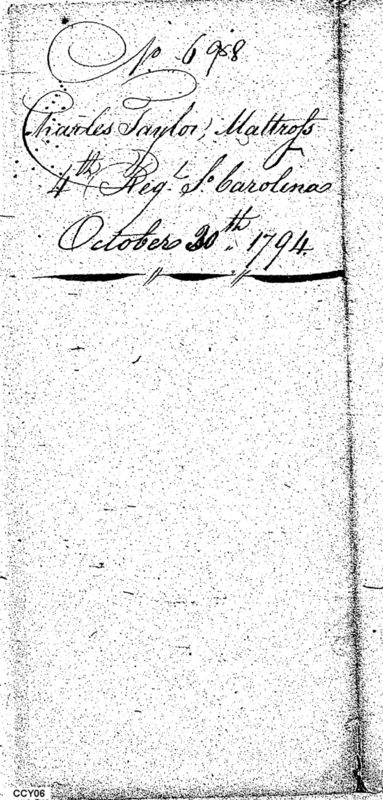 No 698
Charles Taylor, Mattross
4th Regt So Carolina
October 30th 1794.
CCY06